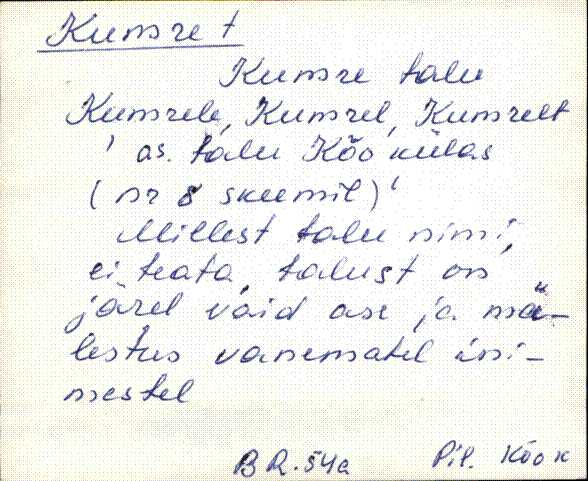 Kumsre t
Kumsre talu
Kumsrele, Kumsrel, Kumsrelt
' as. talu Kõo külas
(nr 8 skeemil)'
Millest talu nimi,
ei teata, talust on
järel vaid ase ja mä-
lestus vanematel ini-
mestel
BR. 54a Pil. Kõo k